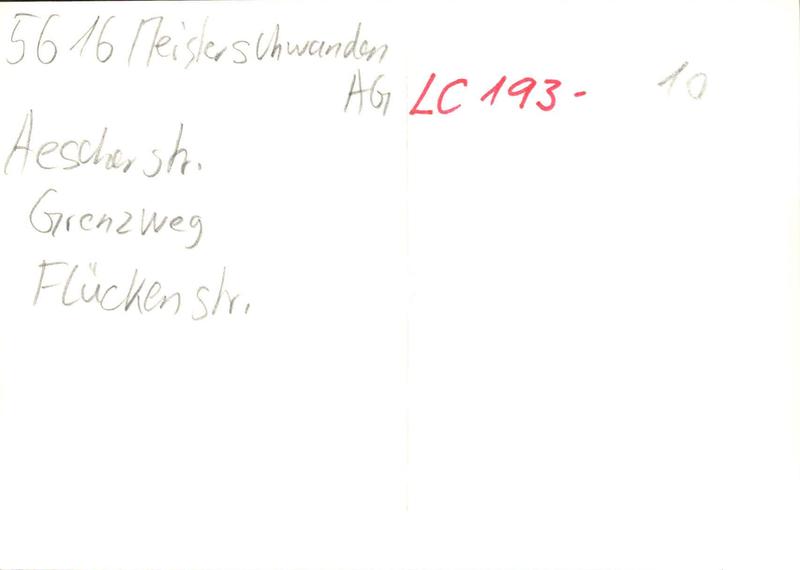 5616 Meisterschwanden
AG LC 193- 10
Aescherstr.
Grenzweg
Flückenstr.